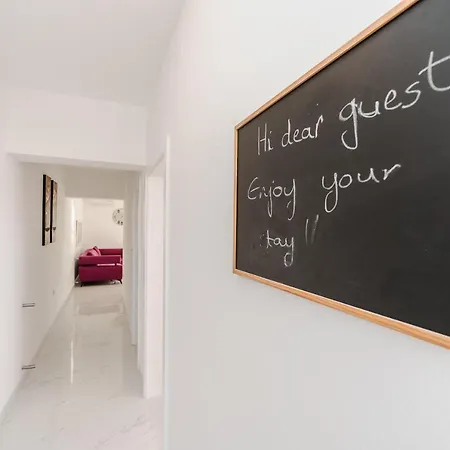 Hi dear guest
Enjoy your
stay!!